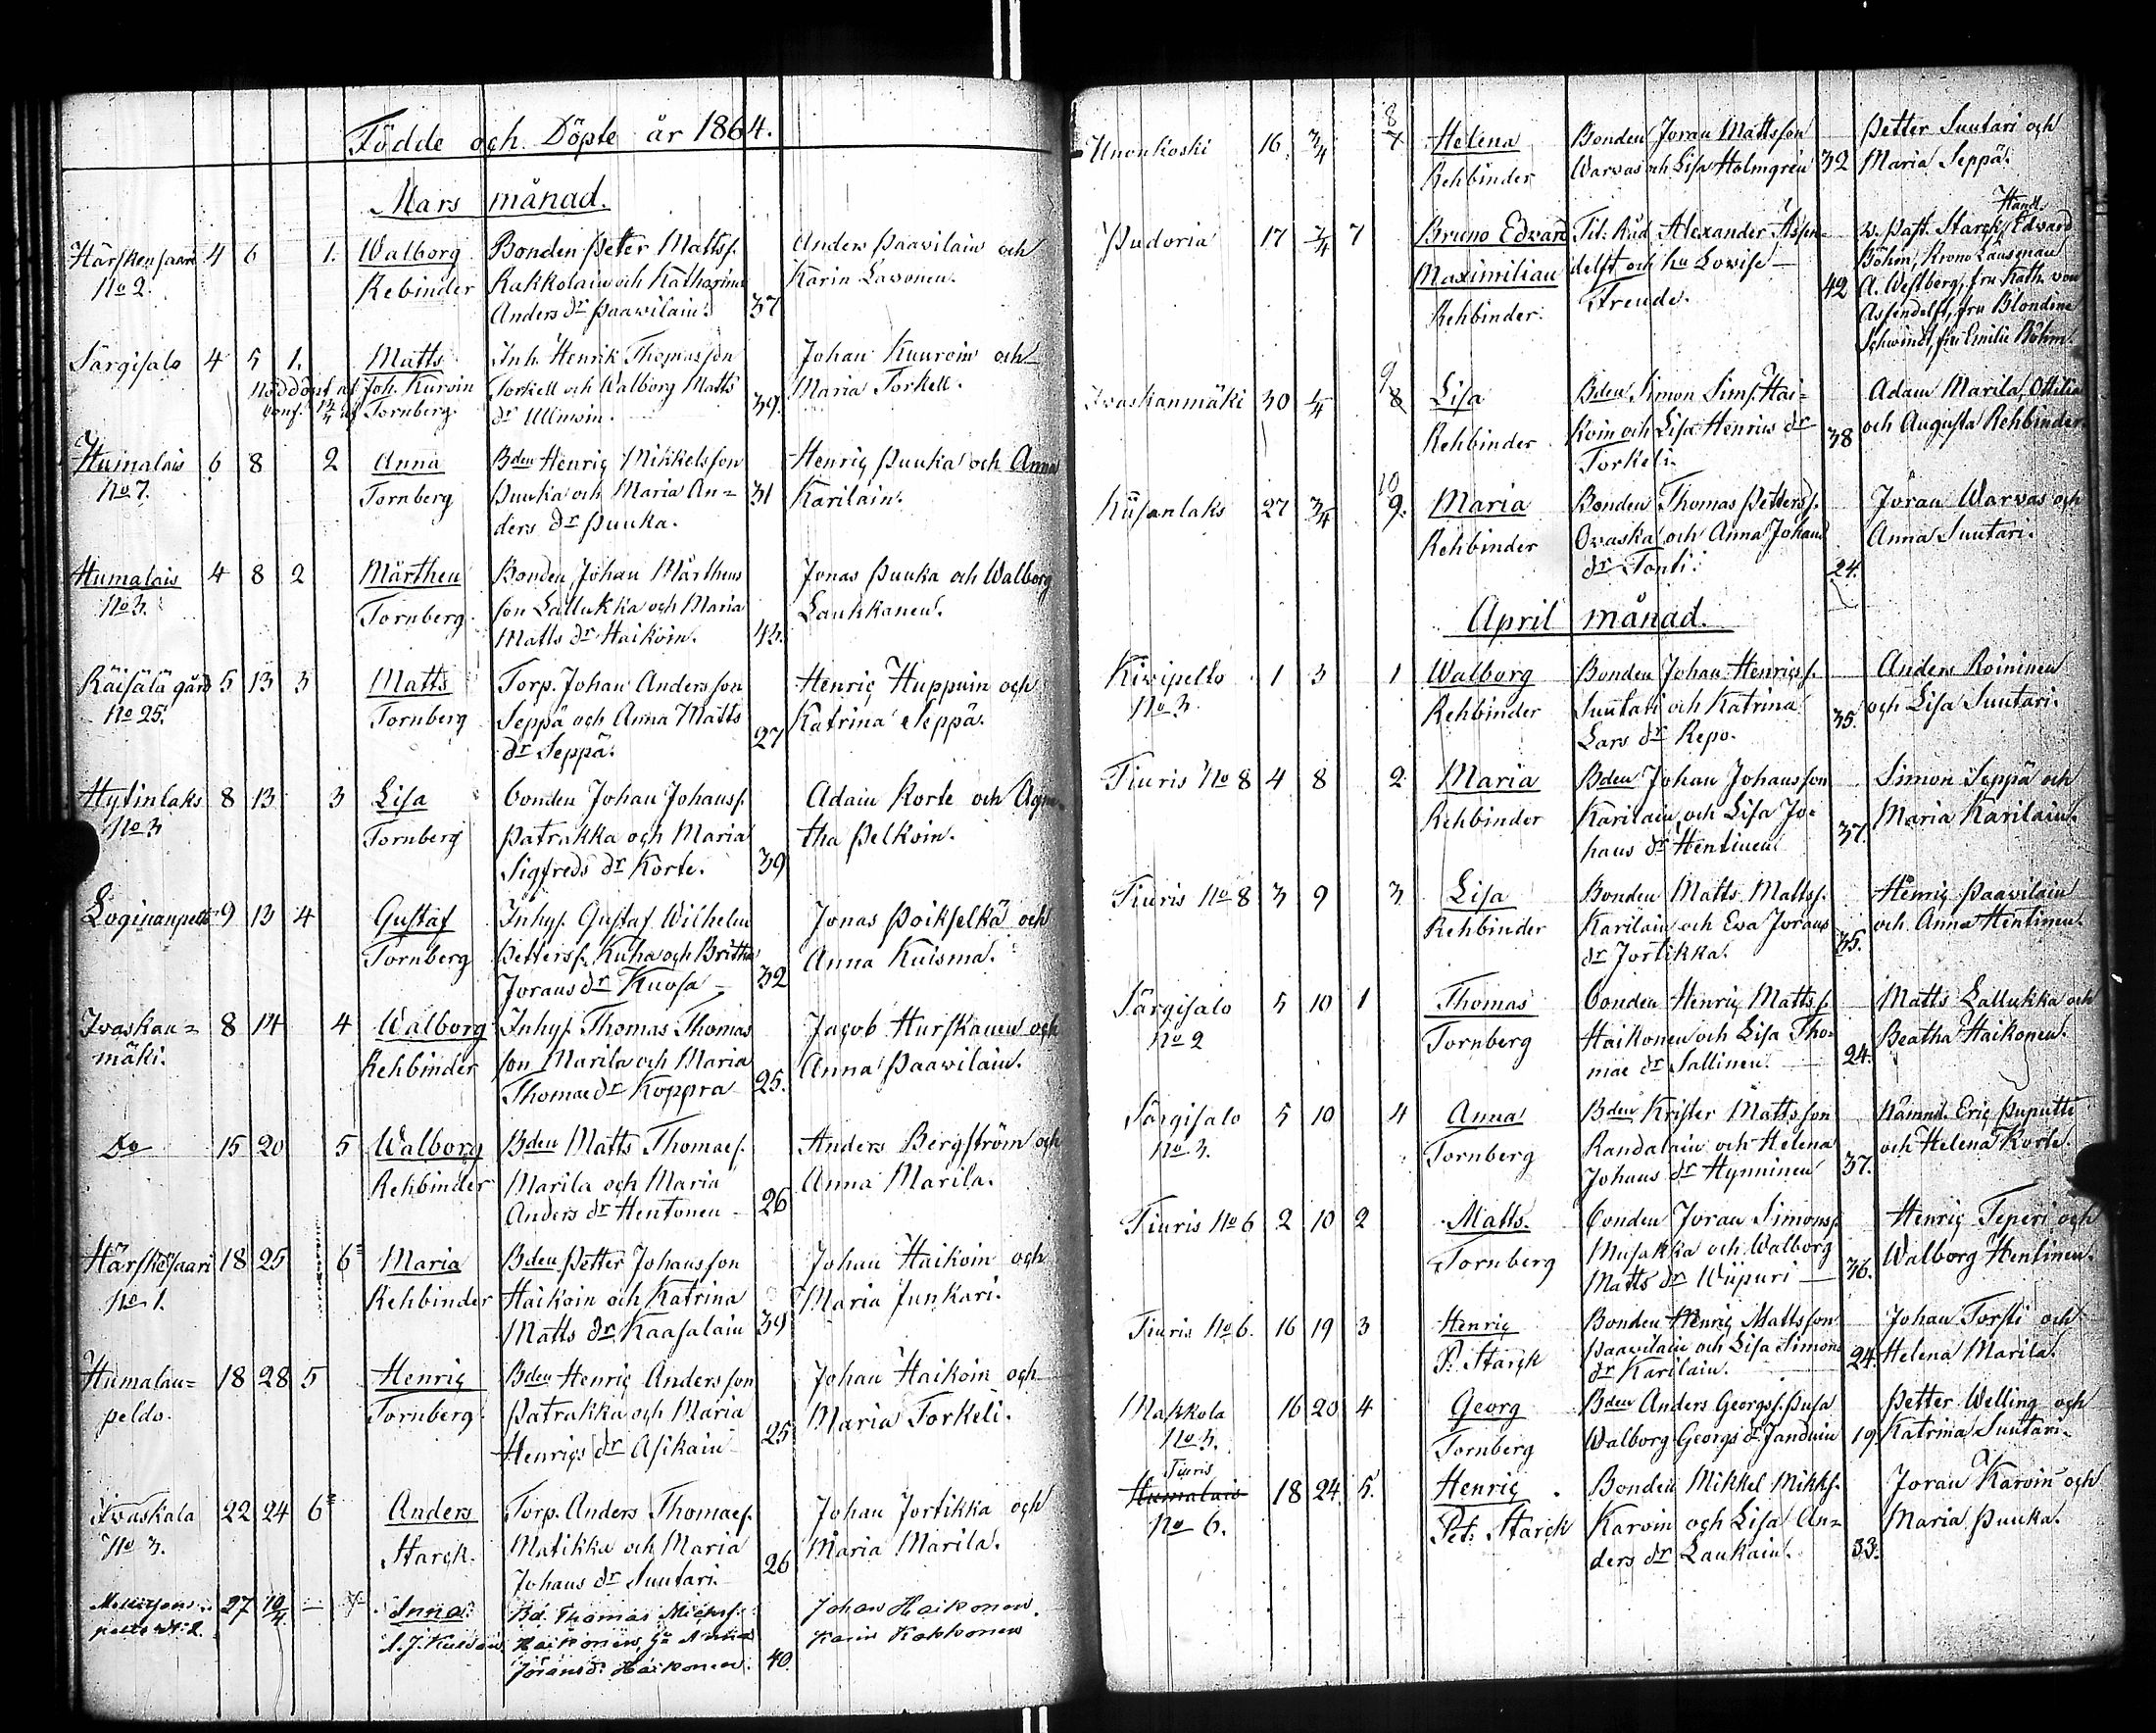 Födde och Döpte år 1864.
Mars månad.
Härskensaari 4 6 1. Walborg Bonden Peter Mattss. Anders Paavilain och
No 2. Rebinder Rakkolain och Katharina Karin Lavonen.
Anders dr Paavilain. 37
Särgisalo 4 5 1. Matts Inh. Henrik Thomasson Johan Kuuroin och
Nöddöpt af Joh. Kurvin Torkell och Walborg Matts Maria Torkell.
af Tornberg. dr Ullmoin. 39.
Humalais 6 8 2 Anna Bden Henric Mikkelsson Henric Puuka och Anna
No 7. Tornberg Puuka och Maria An= 31 Karilain.
ders dr Puuka.
Humalais 4 8 2 Mårthen Bonden Johan Mårthens Jonas Puuka och Walborg
No 3. Tornberg. son Lallukka och Maria Lauhkanen.
Matts dr Haikoin. 43.
Räisälä gård 5 13 3 Matts Torp. Johan Andersson Henric Huppuin och
No 25. Tornberg Seppä och Anna Matts Katrina Seppä.
dr Seppä. 27
Hytinlaks 8 13 3 Lisa bonden Johan Johanss. Adam Korte och Agne-
No 3 Tornberg Patrakka och Maria tha Pelkoin.
Sigfreds dr Korte. 39
Loginanpelt 9 13 4 Gustaf Inhys. Gustaf Wilhelm Jonas Poikselkä och
Tornberg Petterss. Kuha och Britha Anna Kuisma.
Jorans dr Kuosa 32
Ivaskan= 8 14 4 Walborg Inhys. Thomas Thomas Jacob Hurskanen och
mäki. Rehbinder son Marila och Maria Anna Paavilain.
Thomae dr Koppra 25.
Do 15 20 5 Walborg Bden Matts Thomaes. Anders Bergström och
Rehbinder Marila och Maria Anna Marila.
Anders dr Hentonen 26
Härskesaari 18 25 6 Maria Bden Petter Johansson Johan Haikoin och
No 1. Rehbinder Haikoin och Katrina Maria Junkari.
Matts dr Kaasalain 39
Humalan= 18 28 5 Henric Bden Henric Andersson Johan Haikoin och
peldo. Tornberg. Patrakka och Maria Maria Torkeli.
Henrics dr Asikain 25
Ivaskala 22 24 6 Anders Torp. Anders Thomaes. Johan Jortikka och
No 3. Starck. Matikka och Maria Maria Marila.
Johans dr Suutari. 26
27 10/4 — 7 Anna Bd. Thomas Michs. Johan Haikonen.
Haikonen, Anna Karin Kokkonen
Jöransd: Haikonen. 40.
Unonkoski 16 3/4 8 7 Helena Bonden Joran Mattsson Petter Suutari och
Rehbinder Warvas och Lisa Holmgren 32 Maria Seppä.
Pudoria 17 3/4 7 Bruno Edvard Tit: Råd. Alexander Assen= v. Past. Starck, Hand. Edvard
Maximilian delft och hu Lovise — Böhm, Krono Länsman
Rehbinder. Freude. 42 A. Westberg, fru Kath. von
Assendelft, fru Blondine
Schwindt, frn Emilie Böhm.
Ivaskanmäki 30 5/4 9 8 Lisa Bden Simon Sims. Hai= Adam Marila, Ottilia
Rehbinder koin och Lisa Henrics dr 38 och Augusta Rehbinder.
Torkeli.
Kiisanlaks 27 3/4 10 9. Maria Bonden Thomas Petterss. Jöran Warvas och
Rehbinder Ovaska och Anna Johans Anna Suutari.
dr Tonti. 24.
April månad.
Kivipelto 1 3 1 Walborg Bonden Johan Henricss. Anders Roininen
No 3. Rehbinder Suutari och Katrina 35. och Lisa Suutari.
Lars dr Repo.
Tiuris No 8 4 8 2. Maria Bden Johan Johansson Simon Seppä och
Rehbinder Karilain och Lisa Jo- 37. Maria Karilain.
hans dr Hentinen
Tiuris No 8 3 9 3 Lisa Bonden Matts Mattss. Henric Paavilain
Rehbinder Karilain och Eva Jorans 35. och Anna Hentinen.
dr Jortikka.
Särgisalo 5 10 1 Thomas bonden Henric Mattss. Matts Lallukka och
No 2 Tornberg Haikonen och Lisa Tho- 24. Beatha Haikonen.
mae dr Sallinen.
Särgisalo 5 10 4 Anna Bden Krister Mattsson Nämnd. Eric Puputti
No 3. Tornberg Randalain och Helena 37. och Helena Korte
Johans dr Hynninen
Tiuris No 6 2 10 2 Matts. bonden Joran Simonss. Henric Teperi och
Tornberg Musakka och Walborg 36. Walborg Hentinen.
Matts dr Wiipuri —
Tiuris No 6. 16 19 3 Henric Bonden Henric Mattsson Johan Torsti och
P. Starck Paavilain och Lisa Simons 24. Helena Marila.
dr Karilain.
Makkola 16 20 4 Georg Bden Anders Georgss. Pusa Petter Welling och
No 3. Tornberg Walborg Georgs dr Janduin 19 Katrina Suutari.
Tiuris
Humalais 18 24. 5. Henric Bonden Mikkel Mikks. Joran Karvin och
No 6. Pet: Starck Karvin och Lisa An= Maria Puuka.
ders dr Laukain. 33.